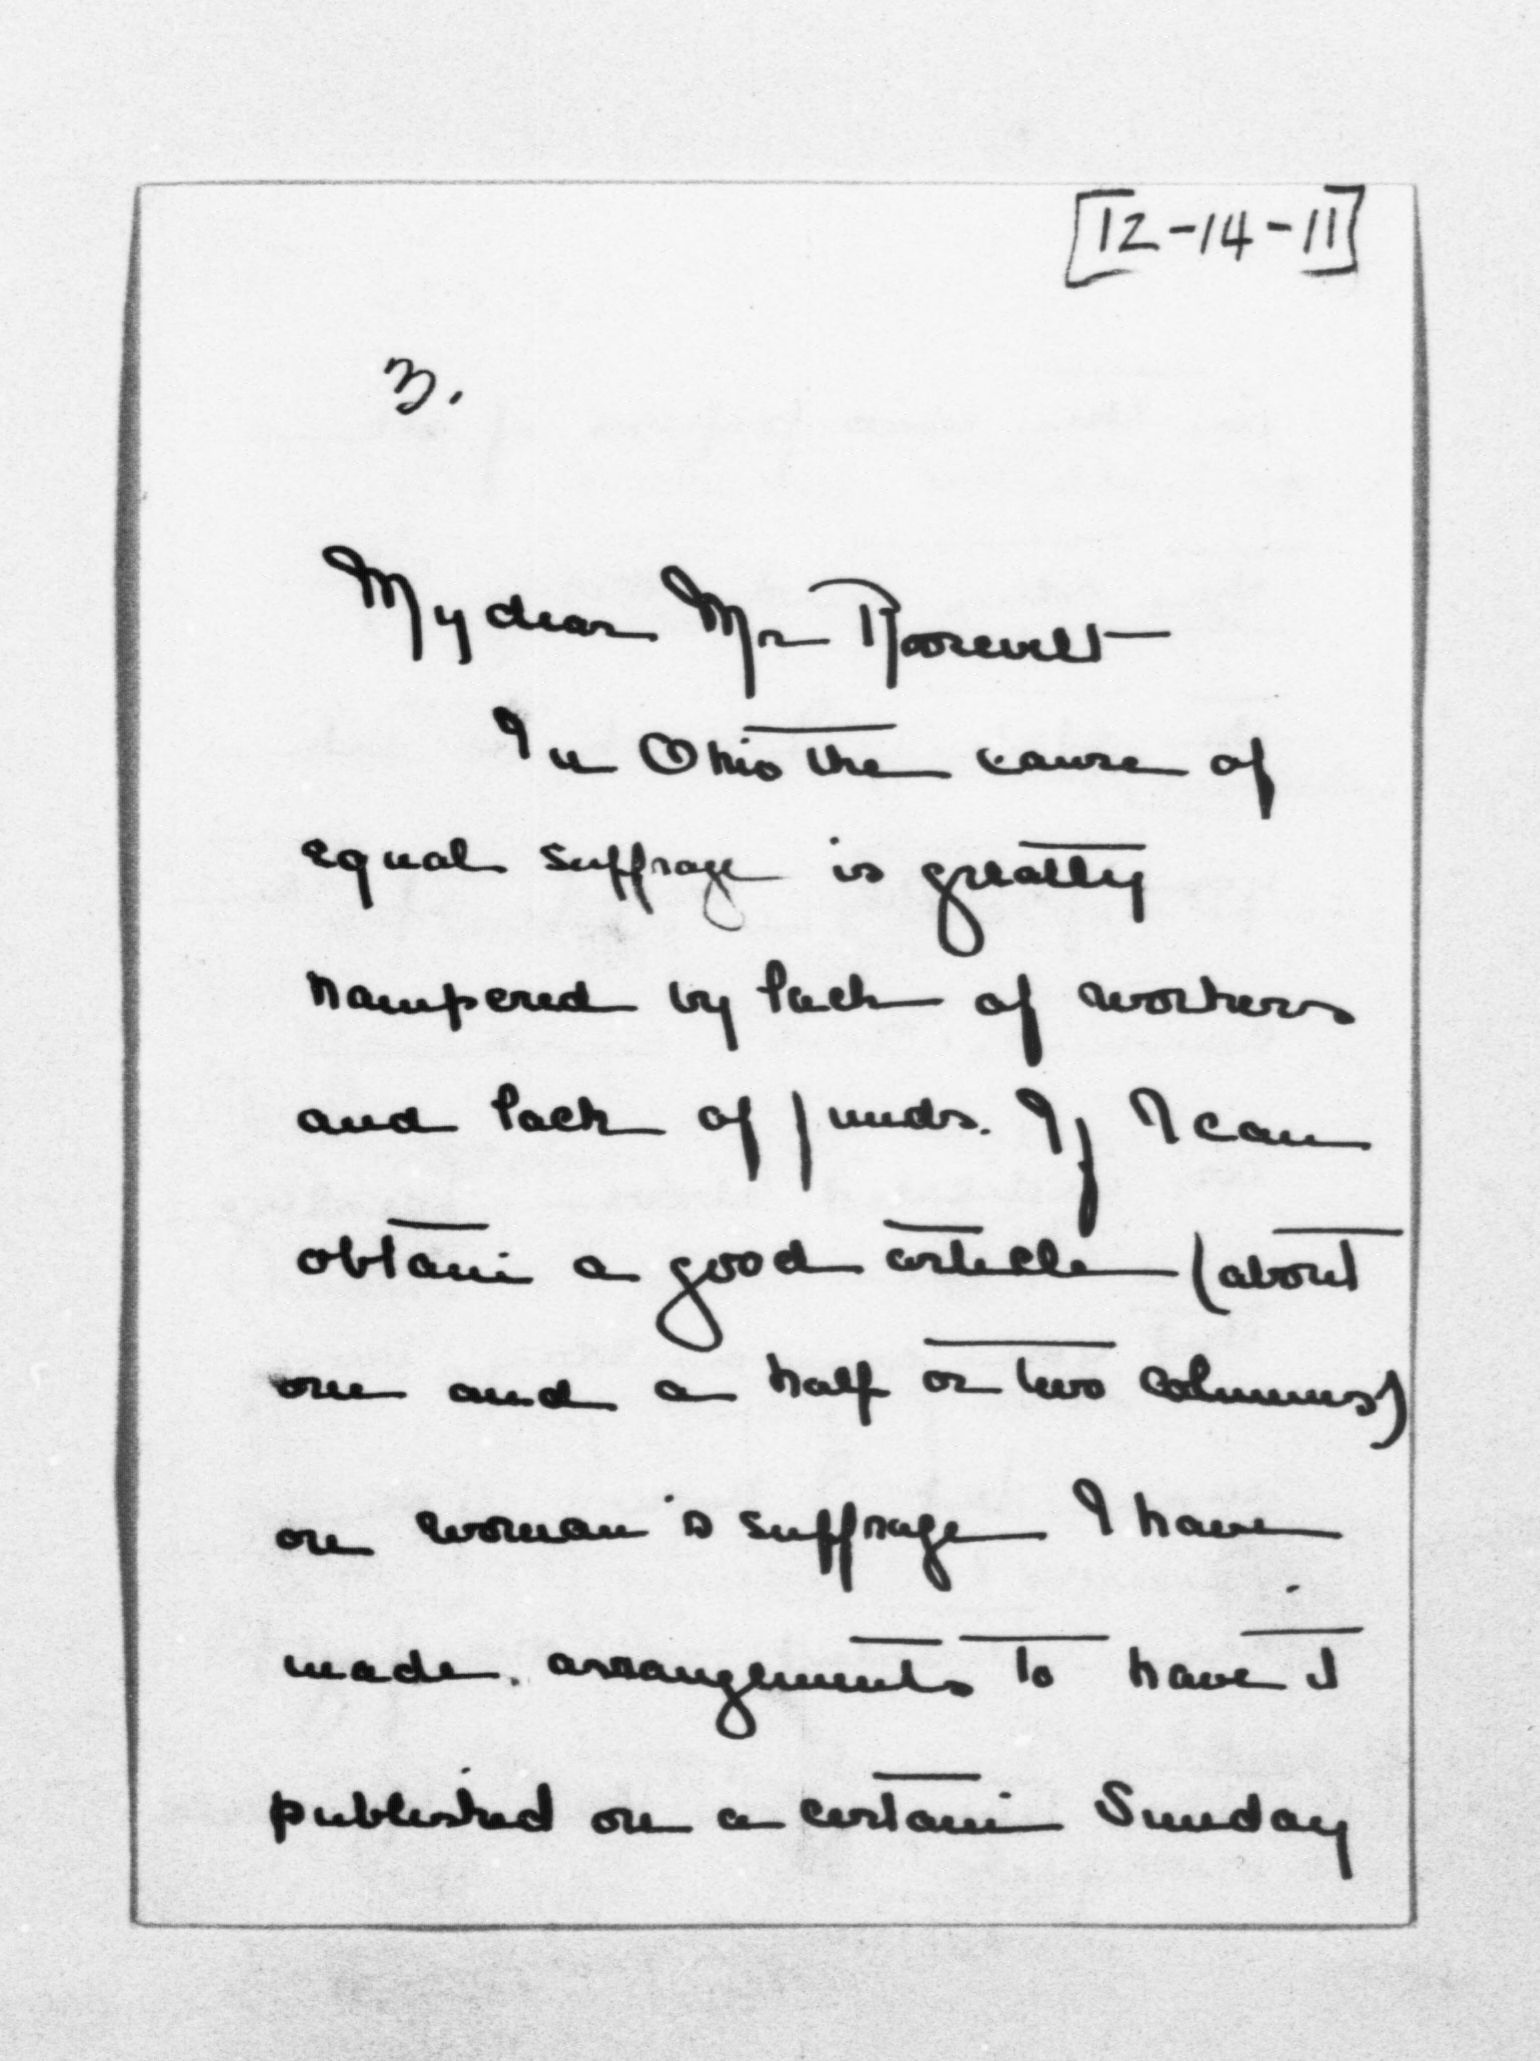 [12-14-11]
3.
My dear Mr Roosevelt
In Ohio the cause of
equal suffrage is greatly
hampered by lack of workers
and lack of funds. If I can
obtain a good article (about
one and a half or two columns)
on woman's suffrage I have
made arrangements to have it
published on a certain Sunday